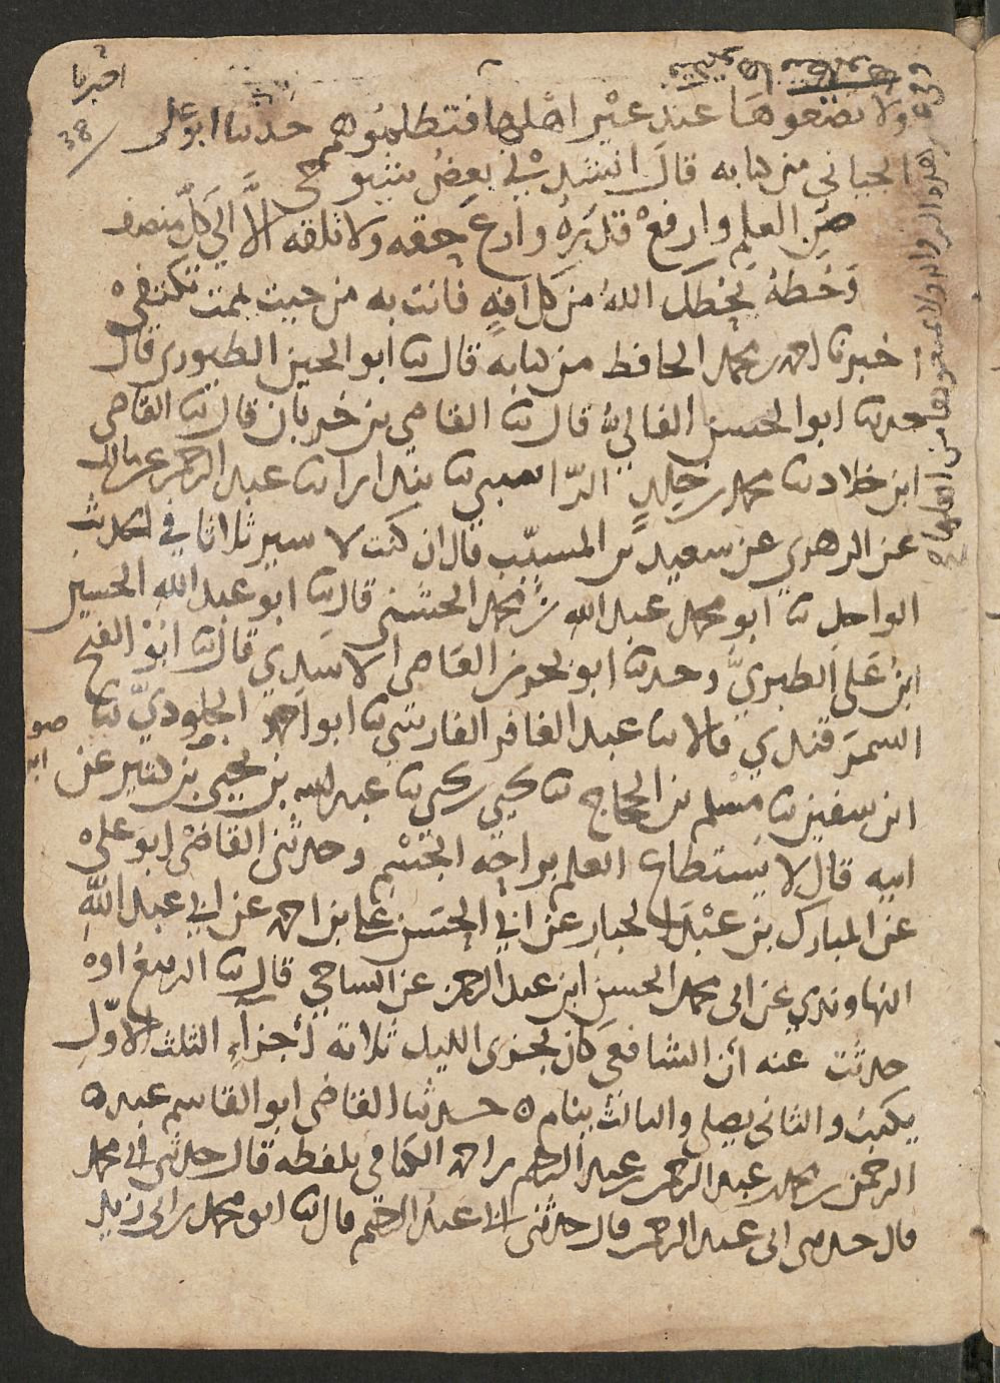 اخبرنا
38
ولا تضعوها عند غير اهلها فتظلموهم حدثنا ابو على
الجياني من كتابه قال انشدني بعض شيوخي
صن العلم وارفع قدره وارع حقه ولا تلقه الا الى كل منصف
وحطه يحطك الله من كل افة فانت به من حيث يممت تكتفى
اخبرنا احمد بن محمد الحافظ من كتابه قال ثنا ابو الحسين الطيوري قال
حدثنا ابو الحسن الفالي قال ثنا القاضي بن خربان قال ثنا القاضي
ابن خلاد ثنا محمد بن خالد الراسبي ثنا بندار ثنا عبد الرحمن عن مالك
عن الزهري عن سعيد بن المسيب قال ان كنت لاسير ثلاثا في الحديث
الواحد ثنا ابو محمد عبد الله بن محمد الخشني قال ثنا ابو عبد الله الحسين
ابن على الطبري وحدثنا ابو بحر بن العاصى الاسدي قال ثنا ابو الفتح
السمرقندي قالا ثنا عبد الغافر الفارسي ثنا ابو احمد الجلودي ثنا
ابن سفين ثنا مسلم بن الحجاج ثنا يحيى بن يحيى ثنا عبد الله بن يحيى بن كثير عن
ابيه قال لا يستطاع العلم براحة الجسم وحدثنى القاضى ابو على
عن المبارك بن عبد الجبار عن ابي الحسن على بن احمد عن ابي عبد الله
النهاوندي عن ابى محمد الحسن ابن عبد الرحمن عن الساجي قال ثنا الربيع او
حدثت عنه ان الشافعي كان يجزى الليل ثلاثة اجزاء الثلث الاول
يكتب والثانى يصلى والثالث ينام ه حدثنا القاضى ابو القاسم عبد
الرحمن بن محمد بن عبد الرحمن بن عبد الرحيم بن احمد الكتامى بلفظه قال حدثني ابي محمد
قال حدثنى ابى عبد الرحمن قال حدثني ابي عبد الرحيم قال ثنا ابو محمد بن ابى زيد